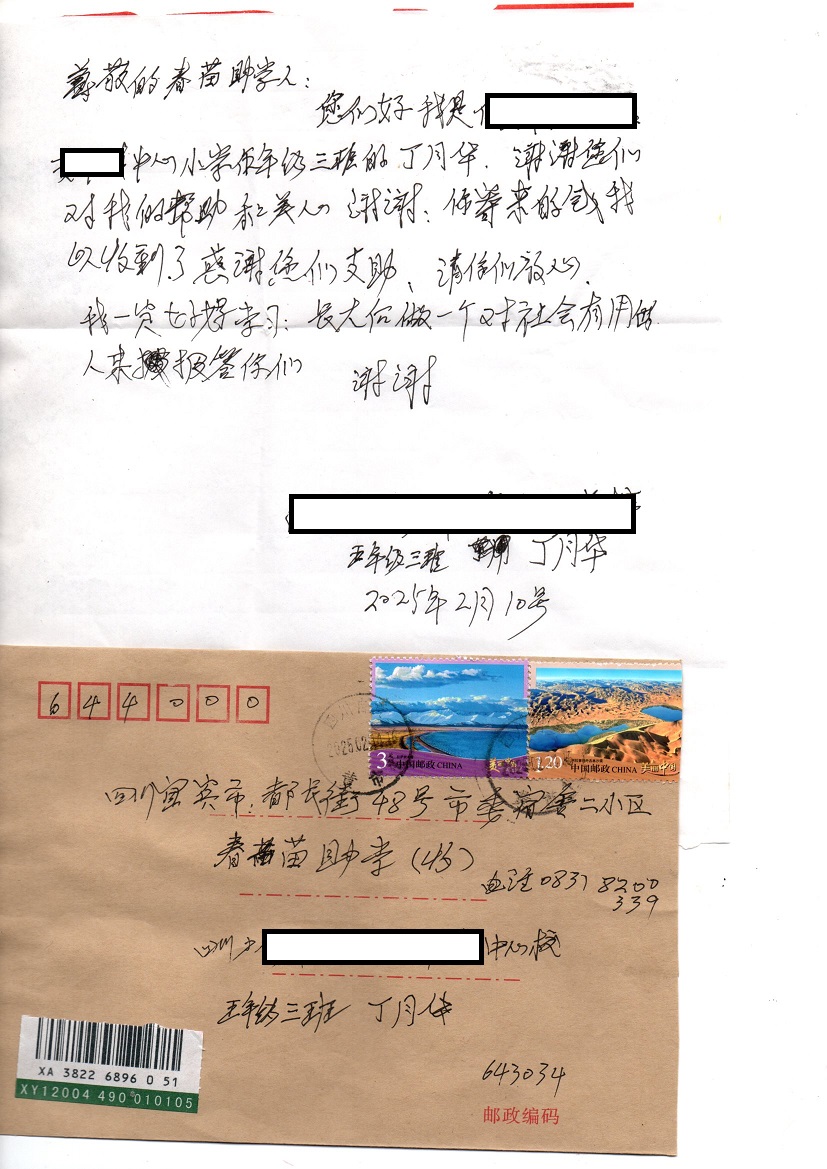 尊敬的春苗助学人：
您们好我是
中心小学伍年级三班的丁月华．谢谢您们
对我的帮助和关心 谢谢：你寄来的钱我
以收到了感谢您们支助、请你们放心、
我一定好好学习：长大后做一个对社会有用的
人来报答你们 谢谢
五年级三班 丁月华
2025年2月10号
644000
3元 中国邮政 CHINA
1.20元 中国邮政 CHINA 美丽中国
四川宜宾市．都长街48号市委宿舍二小区
春苗助学（收）
电话 0831 8200
339
四川 中心校
五年级三班 丁月华
XA 3822 6896 0 51
XY12004 490 010105
643034
邮政编码